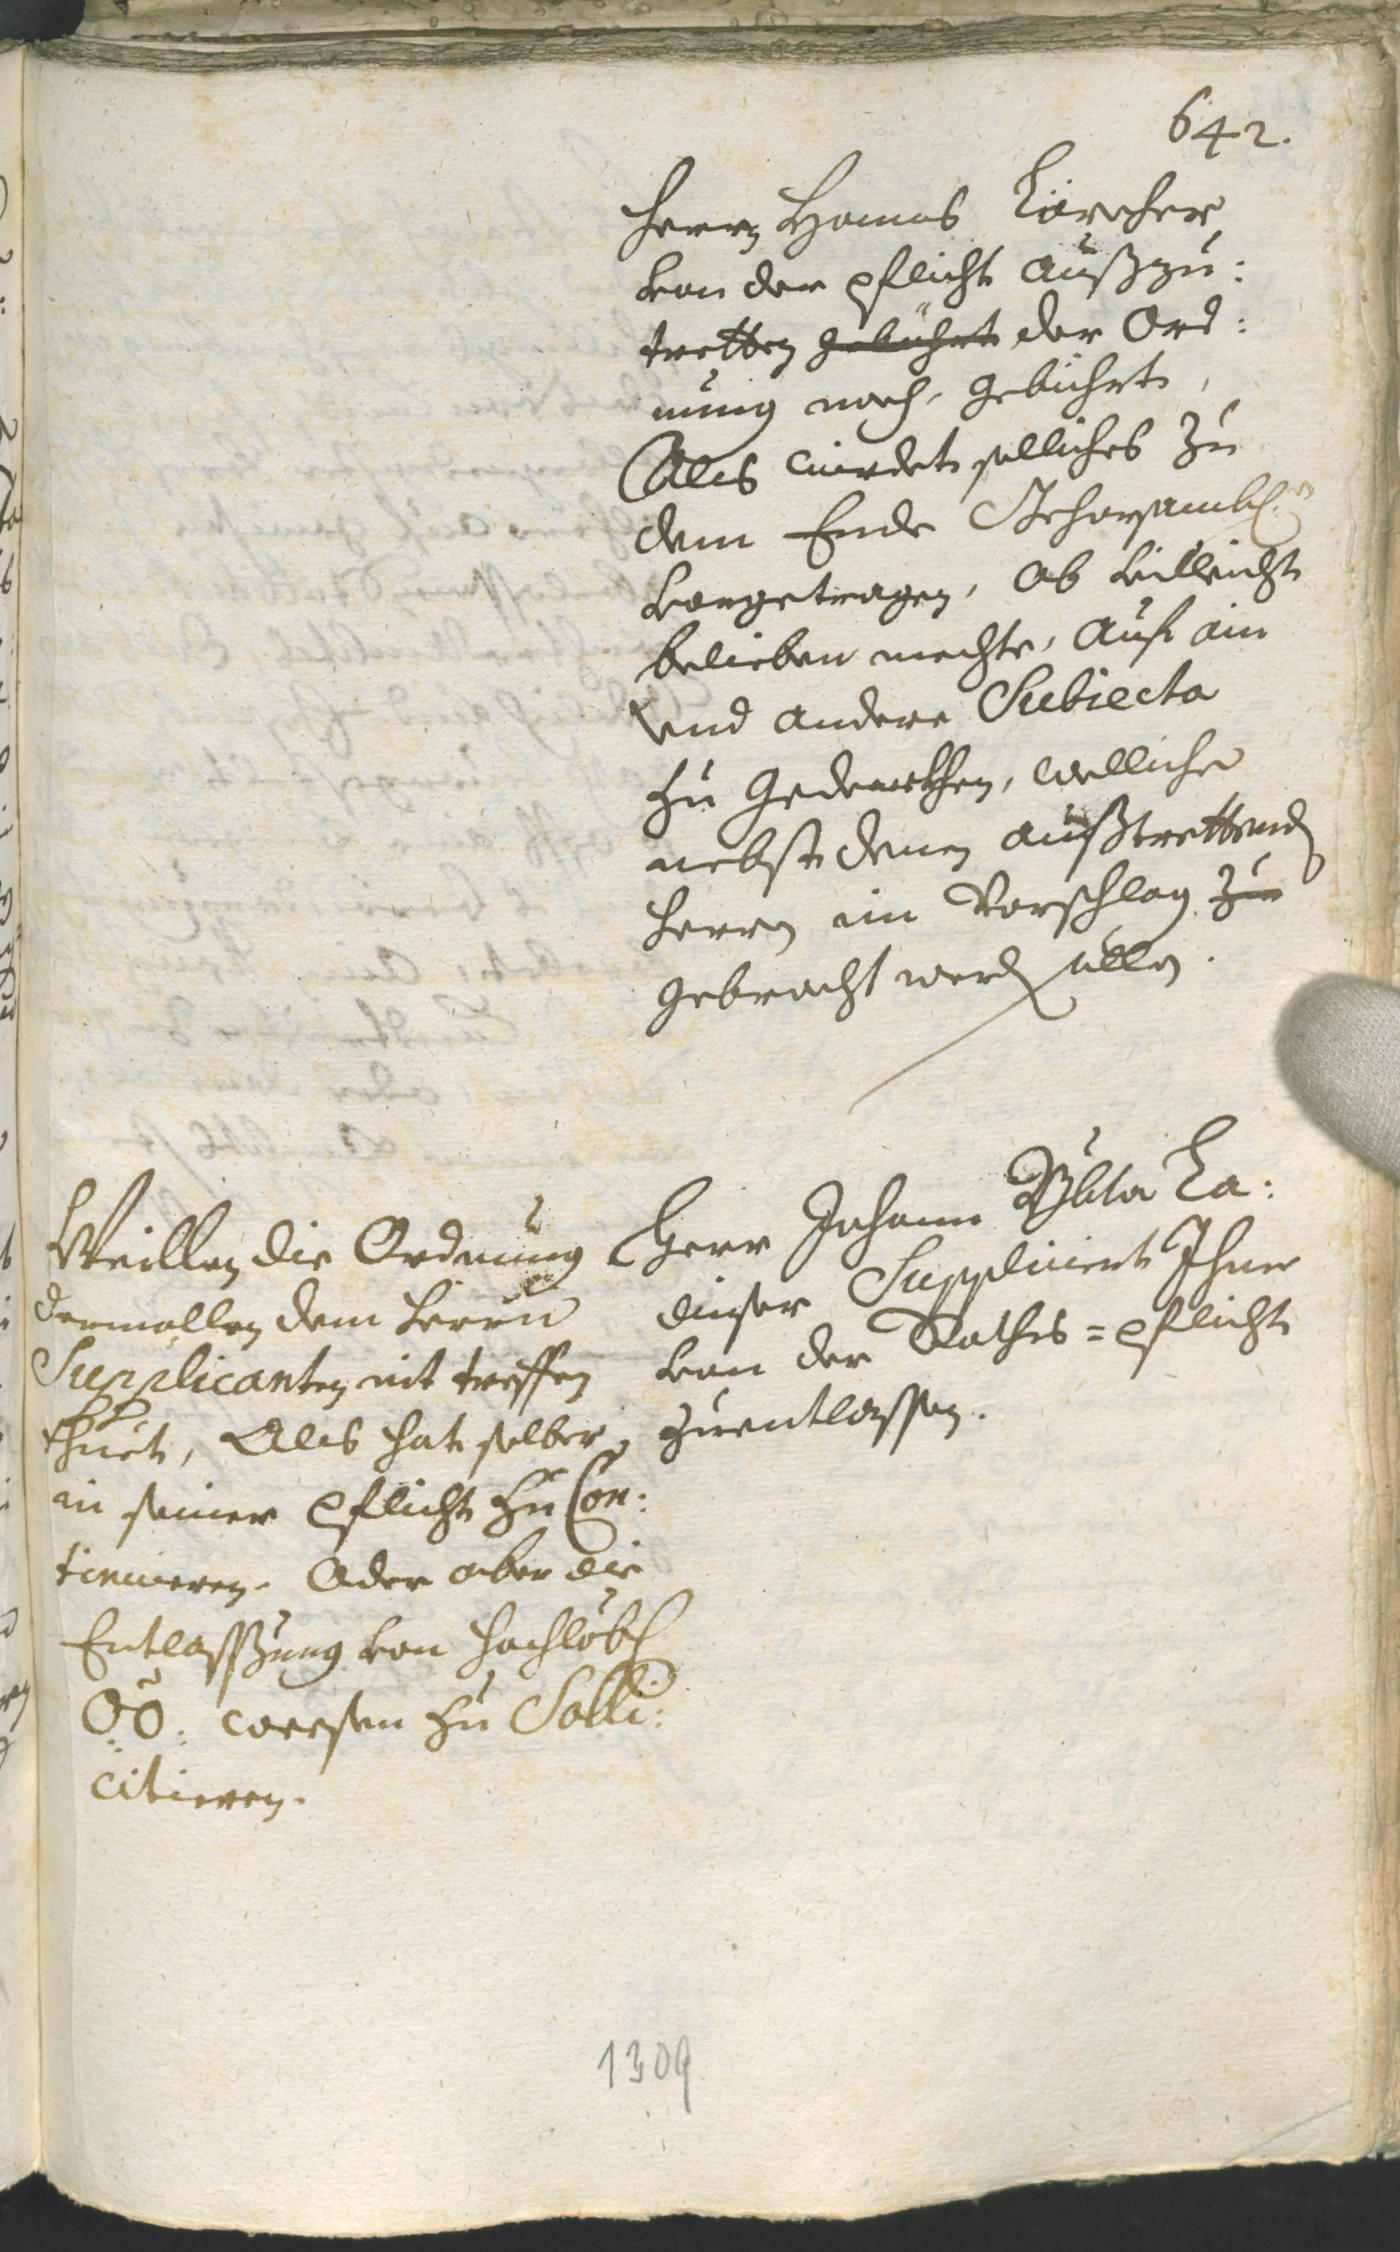 642.
Herrn Hanns Kärcher
von der pflicht außzu:
tretten gebührt der Ord:
nung nach, gebührt,
Als wirdet solliches zu
dem Ende Gehorsambl:
vorgetragen, ob villeicht
belieben mechte, auf ain
vnd andere Subiecta
zu Gedenckhen, welliche
nebst denen außtrettend
herrn im Vorschlag zu
gebracht werd sollen.
Herr Johann
dinser Supplicirt Ihne
von der Raths=pflicht
zuentlassen.
Weillen die Ordnung
dermallen dem herrn
Supplicanten nit treffen
thuet, Als hat selber
in seiner pflicht zu Con:
tinuieren. Oder aber die
Entlassung von hochlöbl
OÖ: weesen zu Solli:
citieren.
1309